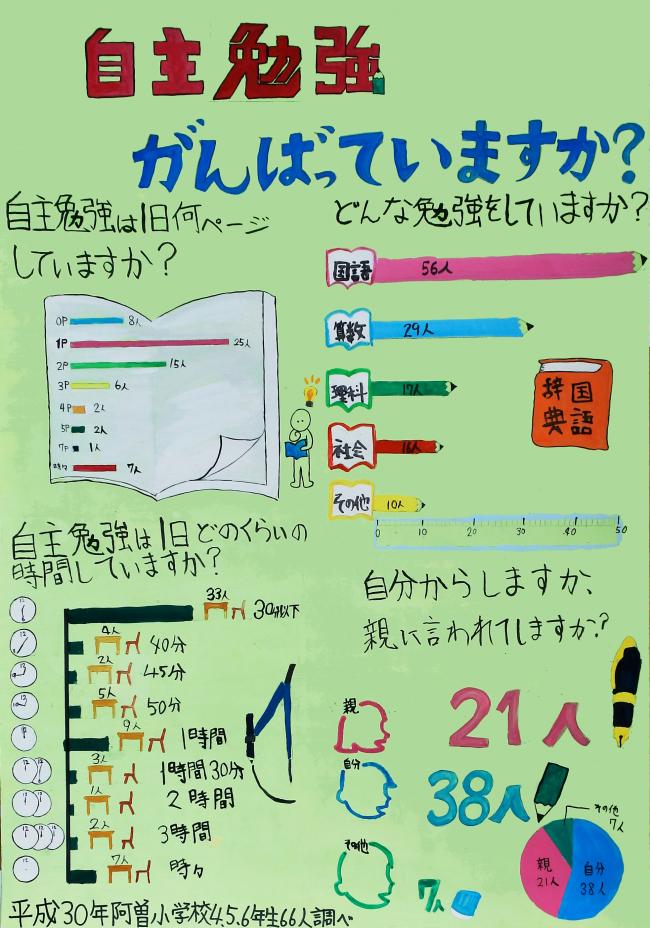 自主勉強
がんばっていますか?
自主勉強は1日何ページ
していますか?
0P 8人
1P 25人
2P 15人
3P 6人
4P 2人
5P 2人
7P 1人
時々 7人
どんな勉強をしていますか?
国語 56人
算数 29人
理科 17人
社会 16人
その他 10人
0 10 20 30 40 50
国語
辞典
自主勉強は1日どのくらいの
時間していますか?
33人 30分以下
4人 40分
2人 45分
5人 50分
9人 1時間
3人 1時間30分
1人 2時間
2人 3時間
7人 時々
自分からしますか、
親に言われてしますか?
親 21人
自分 38人
その他 7人
その他
7人
親
21人
自分
38人
平成30年阿曽小学校4.5.6年生66人調べ